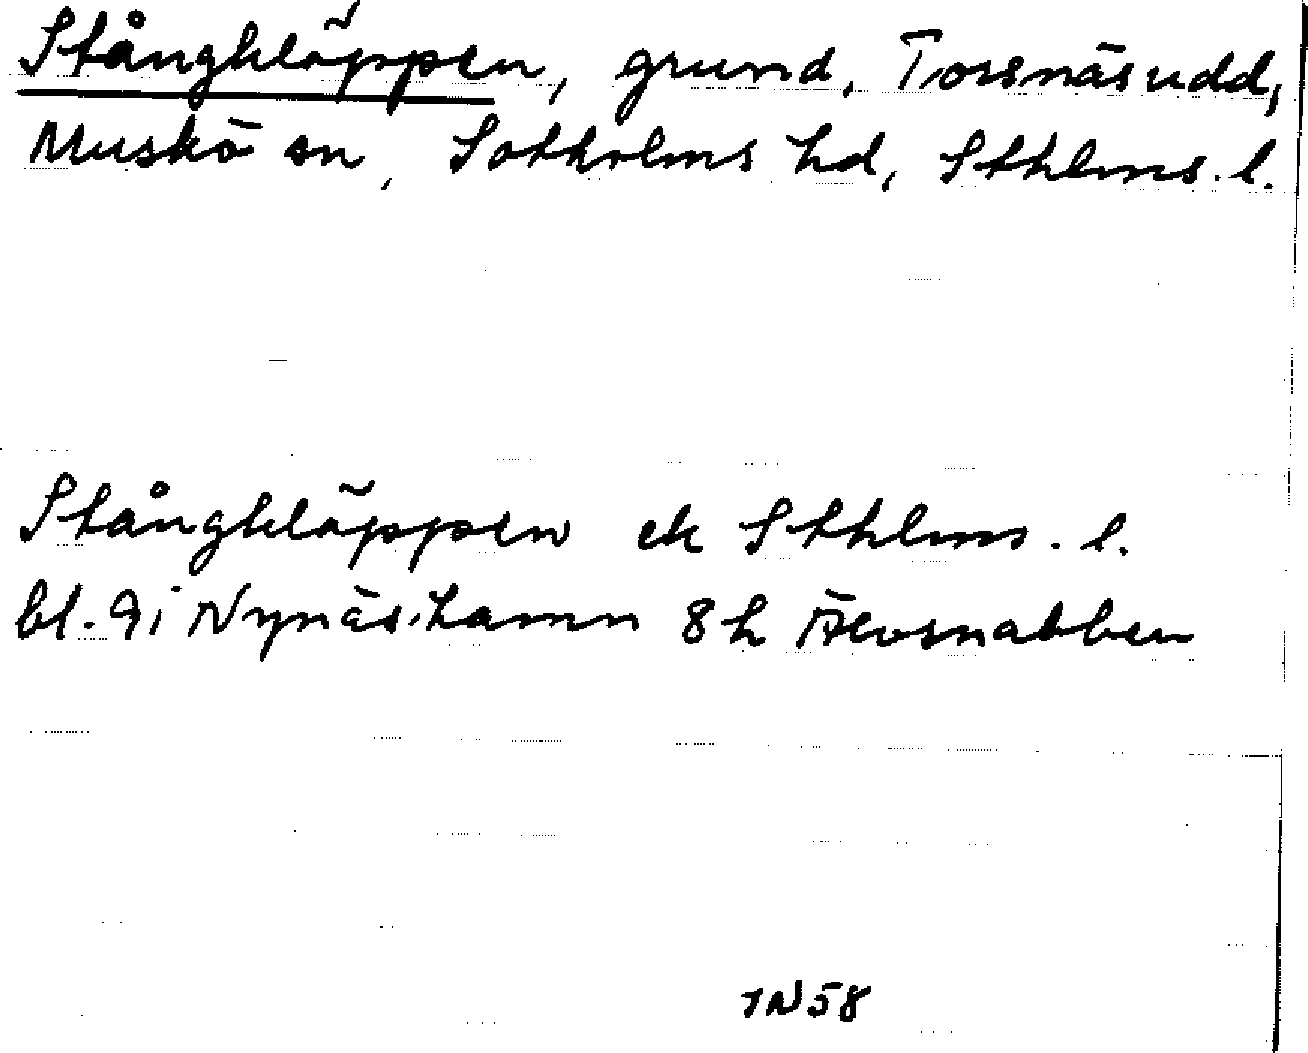 Stångkläppen, grund, Torsnäsudd,
Muskö sn, Sotholms hd, Sthlms. l.
Stångkläppen ek Sthlms. l.
bl. 9i Nynäshamn 8h Älvsnabben
TN58